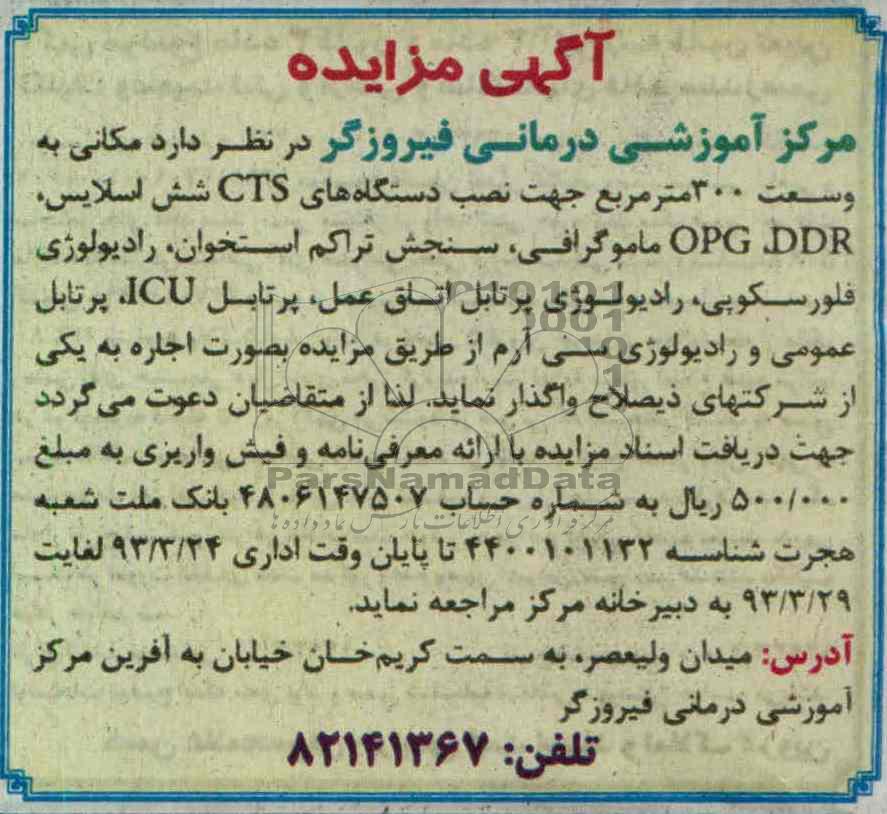 آگهی مزایده
مرکز آموزشی درمانی فیروزگر در نظر دارد مکانی به
وسعت ۳۰۰مترمربع جهت نصب دستگاه‌های CTS شش اسلایس،
OPG ،DDR ماموگرافی، سنجش تراکم استخوان، رادیولوژی
فلورسکوپی، رادیولوژی پرتابل اتاق عمل، پرتابل ICU، پرتابل
عمومی و رادیولوژی سی آرم از طریق مزایده بصورت اجاره به یکی
از شرکتهای ذیصلاح واگذار نماید. لذا از متقاضیان دعوت می‌گردد
جهت دریافت اسناد مزایده با ارائه معرفی‌نامه و فیش واریزی به مبلغ
۵۰۰/۰۰۰ ریال به شماره حساب ۴۸۰۶۱۴۷۵۰۷ بانک ملت شعبه
هجرت شناسه ۴۴۰۰۱۰۱۱۳۲ تا پایان وقت اداری ۹۳/۳/۲۴ لغایت
۹۳/۳/۲۹ به دبیرخانه مرکز مراجعه نماید.
آدرس: میدان ولیعصر، به سمت کریم‌خان خیابان به آفرین مرکز
آموزشی درمانی فیروزگر
تلفن: ۸۲۱۴۱۳۶۷
ParsNamadData